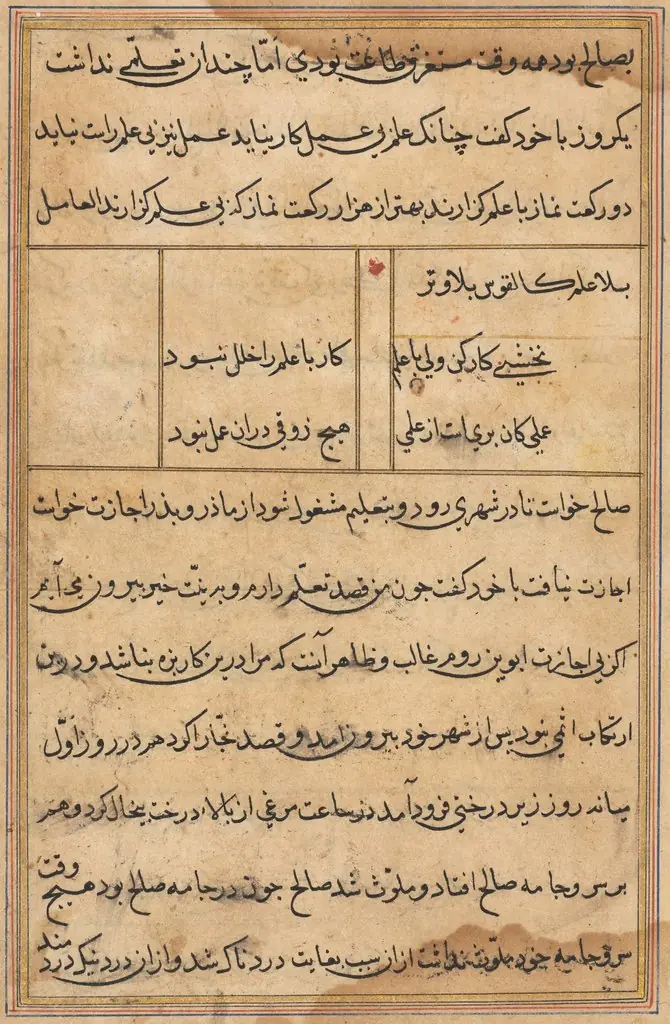 بصالح بود همه وقت مستغرق طاعت بودي اَمّا چندان تعلّمي نداشت
يكروز با خود كفت چنانك علم بي عمل كار نيايد عمل نيز بي علم راست نيايد
دو ركعت نماز با علم كزارند بهتر از هزار ركعت نماز كه بي علم كزارند العامل
بلا علم كالقوس بلا وتر
نخشبي كار كن ولي با علم
كار با علم را خللي نبود
علي كان بري است از علي
هيچ زوقي دران عمل نبود
صالح خواست تا در شهري رود و بتعليم مشغول شود از ماذر و بذر اجازت خواست
اجازت نيافت با خود كفت جون من قصد تعلّم دارم و بدين نيّت خير بيرون مي آيم
اكر بي اجازت ابوين روم غالب و ظاهر آنست كه مرا درين كار بزه نباشد و درين
ارتكاب اثمي نبود پس از شهر خود بيرون آمد و قصد نجّار كرد هم در روز اوّل
ميانه روز زير درختي فرود آمد در ساعت مرغي از بالاء درخت پيخال كرد و هم
بر سر و جامه صالح افتاد و ملوّث شد صالح جون در جامه صالح بود هيچ وقت
سر و جامه خود ملوّث نداشت از ان سبب بغايت دردناك شد و از ان درد نيك دردمند